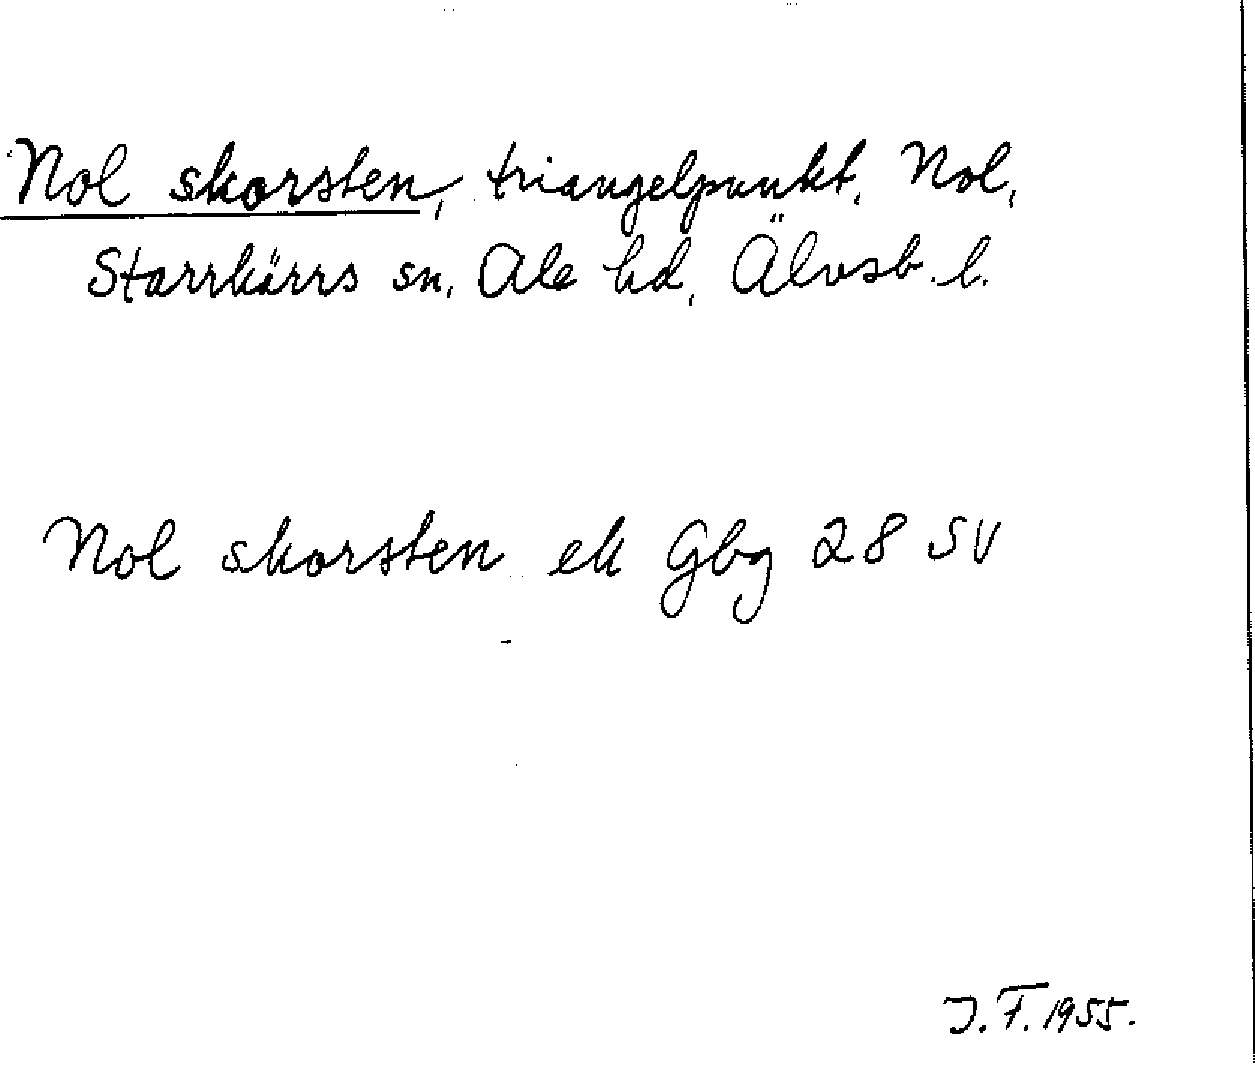 Nol skorsten, triangelpunkt, Nol,
Starrkärrs sn, Ale hd, Älvsb. l.
Nol skorsten ek Gbg 28 SV
J. F. 1955.